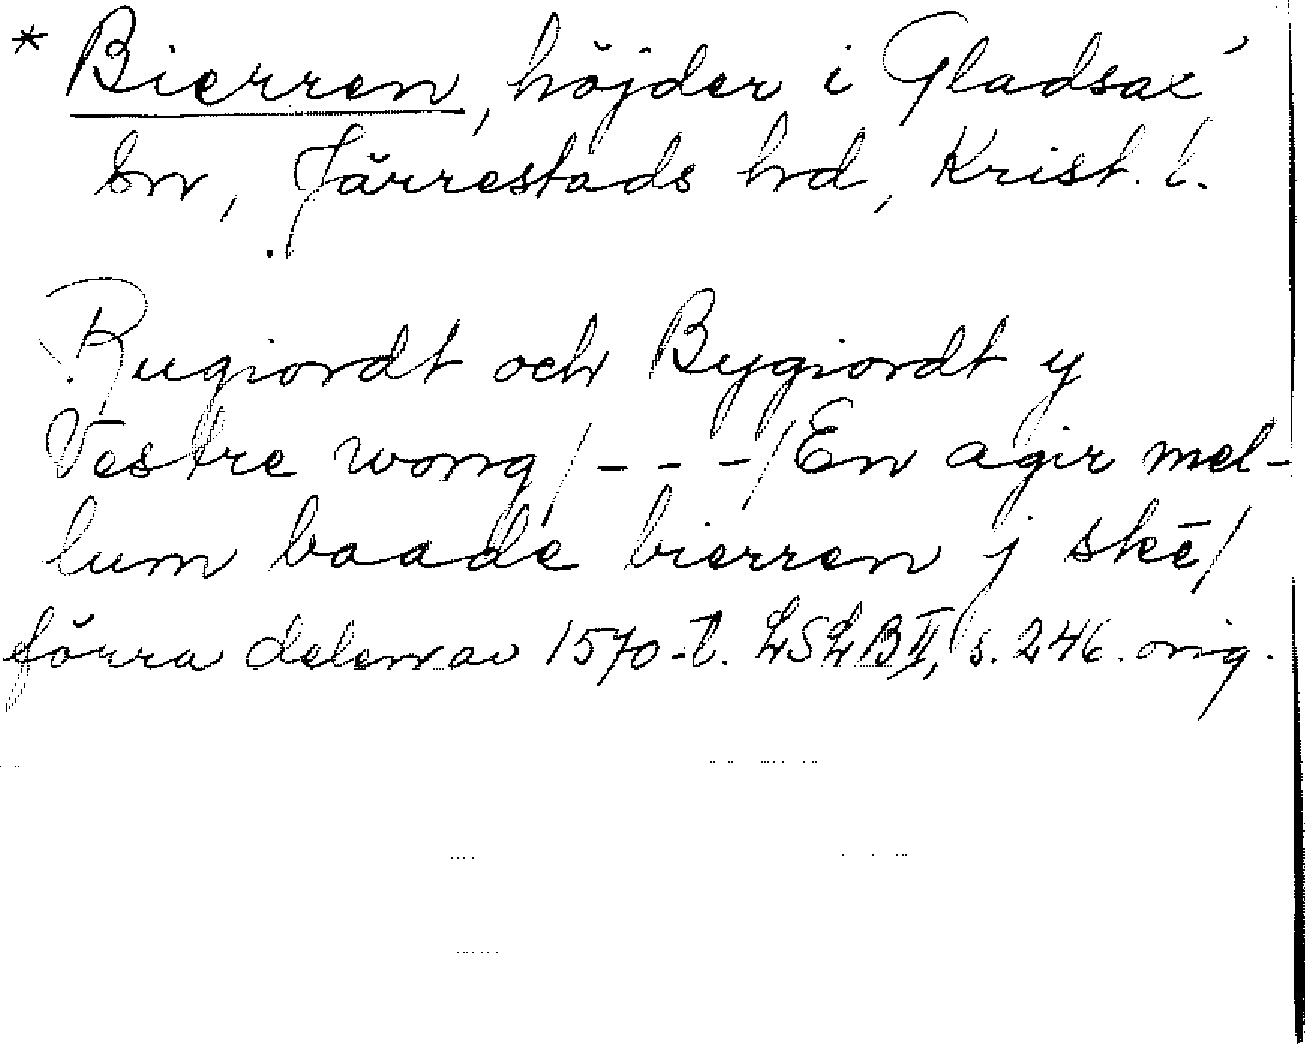 * Bierren, höjder i Gladsax'
sn, Järrestads hd, Krist. l.
Rugiordt och Bygiordt y
Vestre wong / - - - / En agir mel-
lum baade bierren j skē /
förra delen av 1570-t. LSLB II, s. 246. orig.